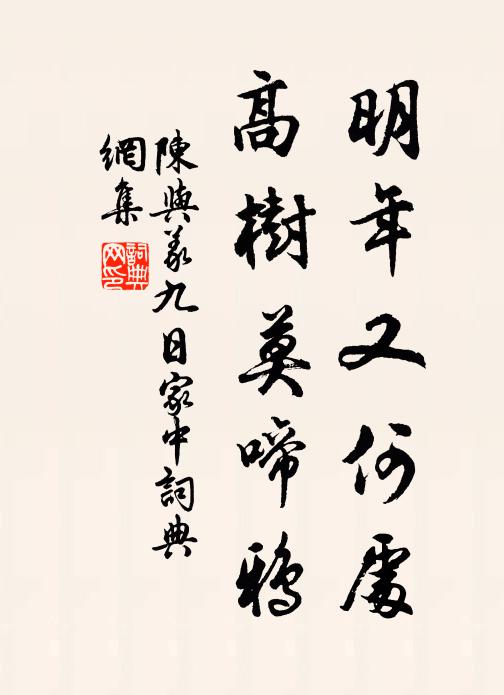 明年又何處
高樹莫啼鴉
陳與義九日家中詞典
網集
詞典
网印